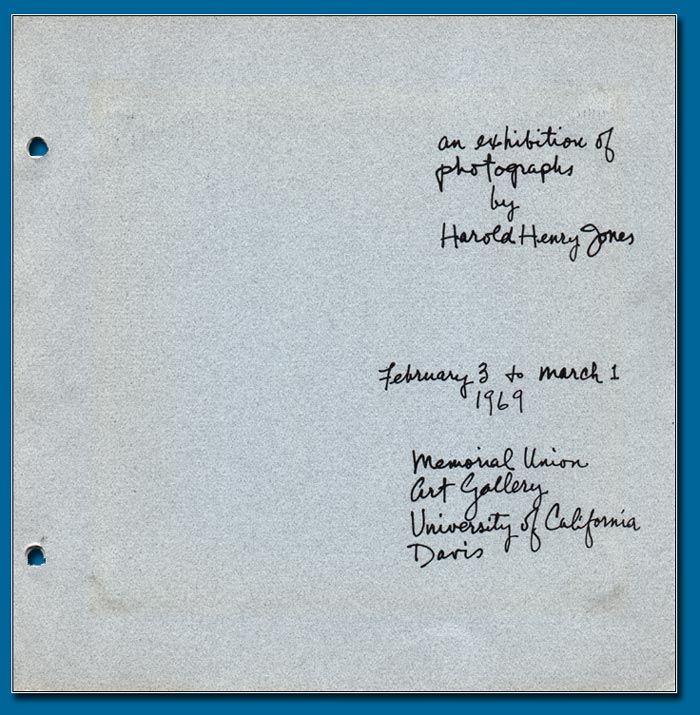 an exhibition of
photographs
by
Harold Henry Jones
February 3 to march 1
1969
Memorial Union
Art Gallery
University of California
Davis